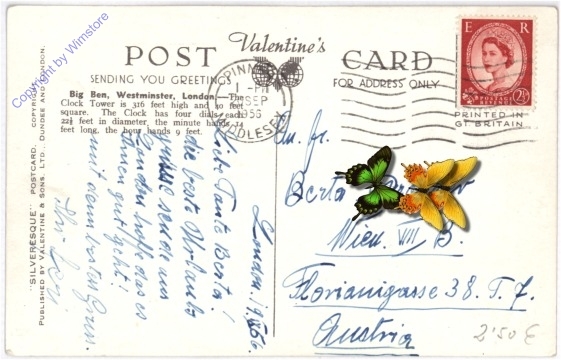 Copyright by Wimstore
POST Valentine's CARD
SENDING YOU GREETINGS FOR ADDRESS ONLY
PINNER
1 - PM
SEP
1956
MIDDLESEX
E R
POSTAGE
REVENUE
2½
PRINTED IN
GT BRITAIN
Big Ben, Westminster, London—The
Clock Tower is 316 feet high and 40 feet
square. The Clock has four dials each
22½ feet in diameter, the minute hands 14
feet long, the hour hands 9 feet.
"SILVERESQUE" POSTCARD. COPYRIGHT
PUBLISHED BY VALENTINE & SONS, LTD., DUNDEE AND LONDON.
London, 1956.
Liebe Tante Berta!
die beste Urlaubs
grüsse sende aus
London hoffe dass es
Ihnen gut geht!
mit den besten
An Fr.
Berta
Wien VIII B.
Florianigasse 38. T. 7.
Austria
2'50 €